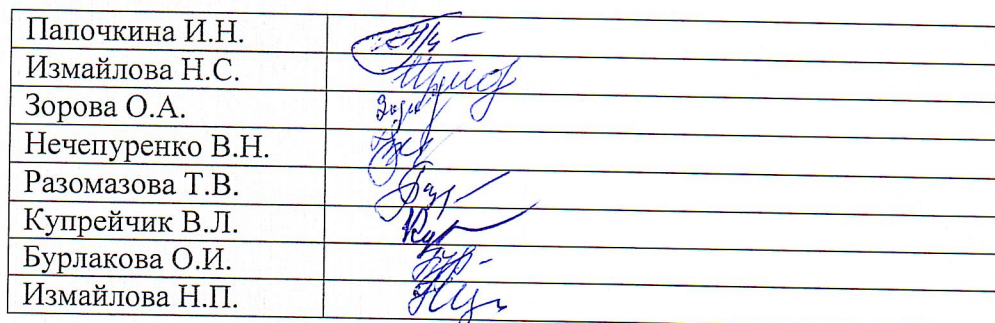 Папочкина И.Н.
Измайлова Н.С.
Зорова О.А.
Нечепуренко В.Н.
Разомазова Т.В.
Купрейчик В.Л.
Бурлакова О.И.
Измайлова Н.П.